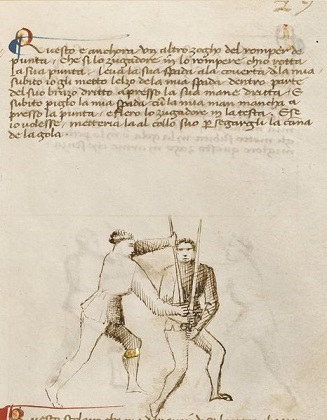 Questo e anchora un altro zogho del romper de
punta, che si lo zugadore in lo rompere ch'io rotta
la sua punta, leva la sua spada ala coverta dla mia
subito io gli metto l'elzo de la mia spada dentro parte
del suo brazo dritto apresso la sua mane dritta, E
subito piglo la mia spada cū la mia man mancha a
presso la punta, e fiero lo zugadore in la testa. E se
io volesse, metteria la al collo suo p segargli la cana
de la gola.